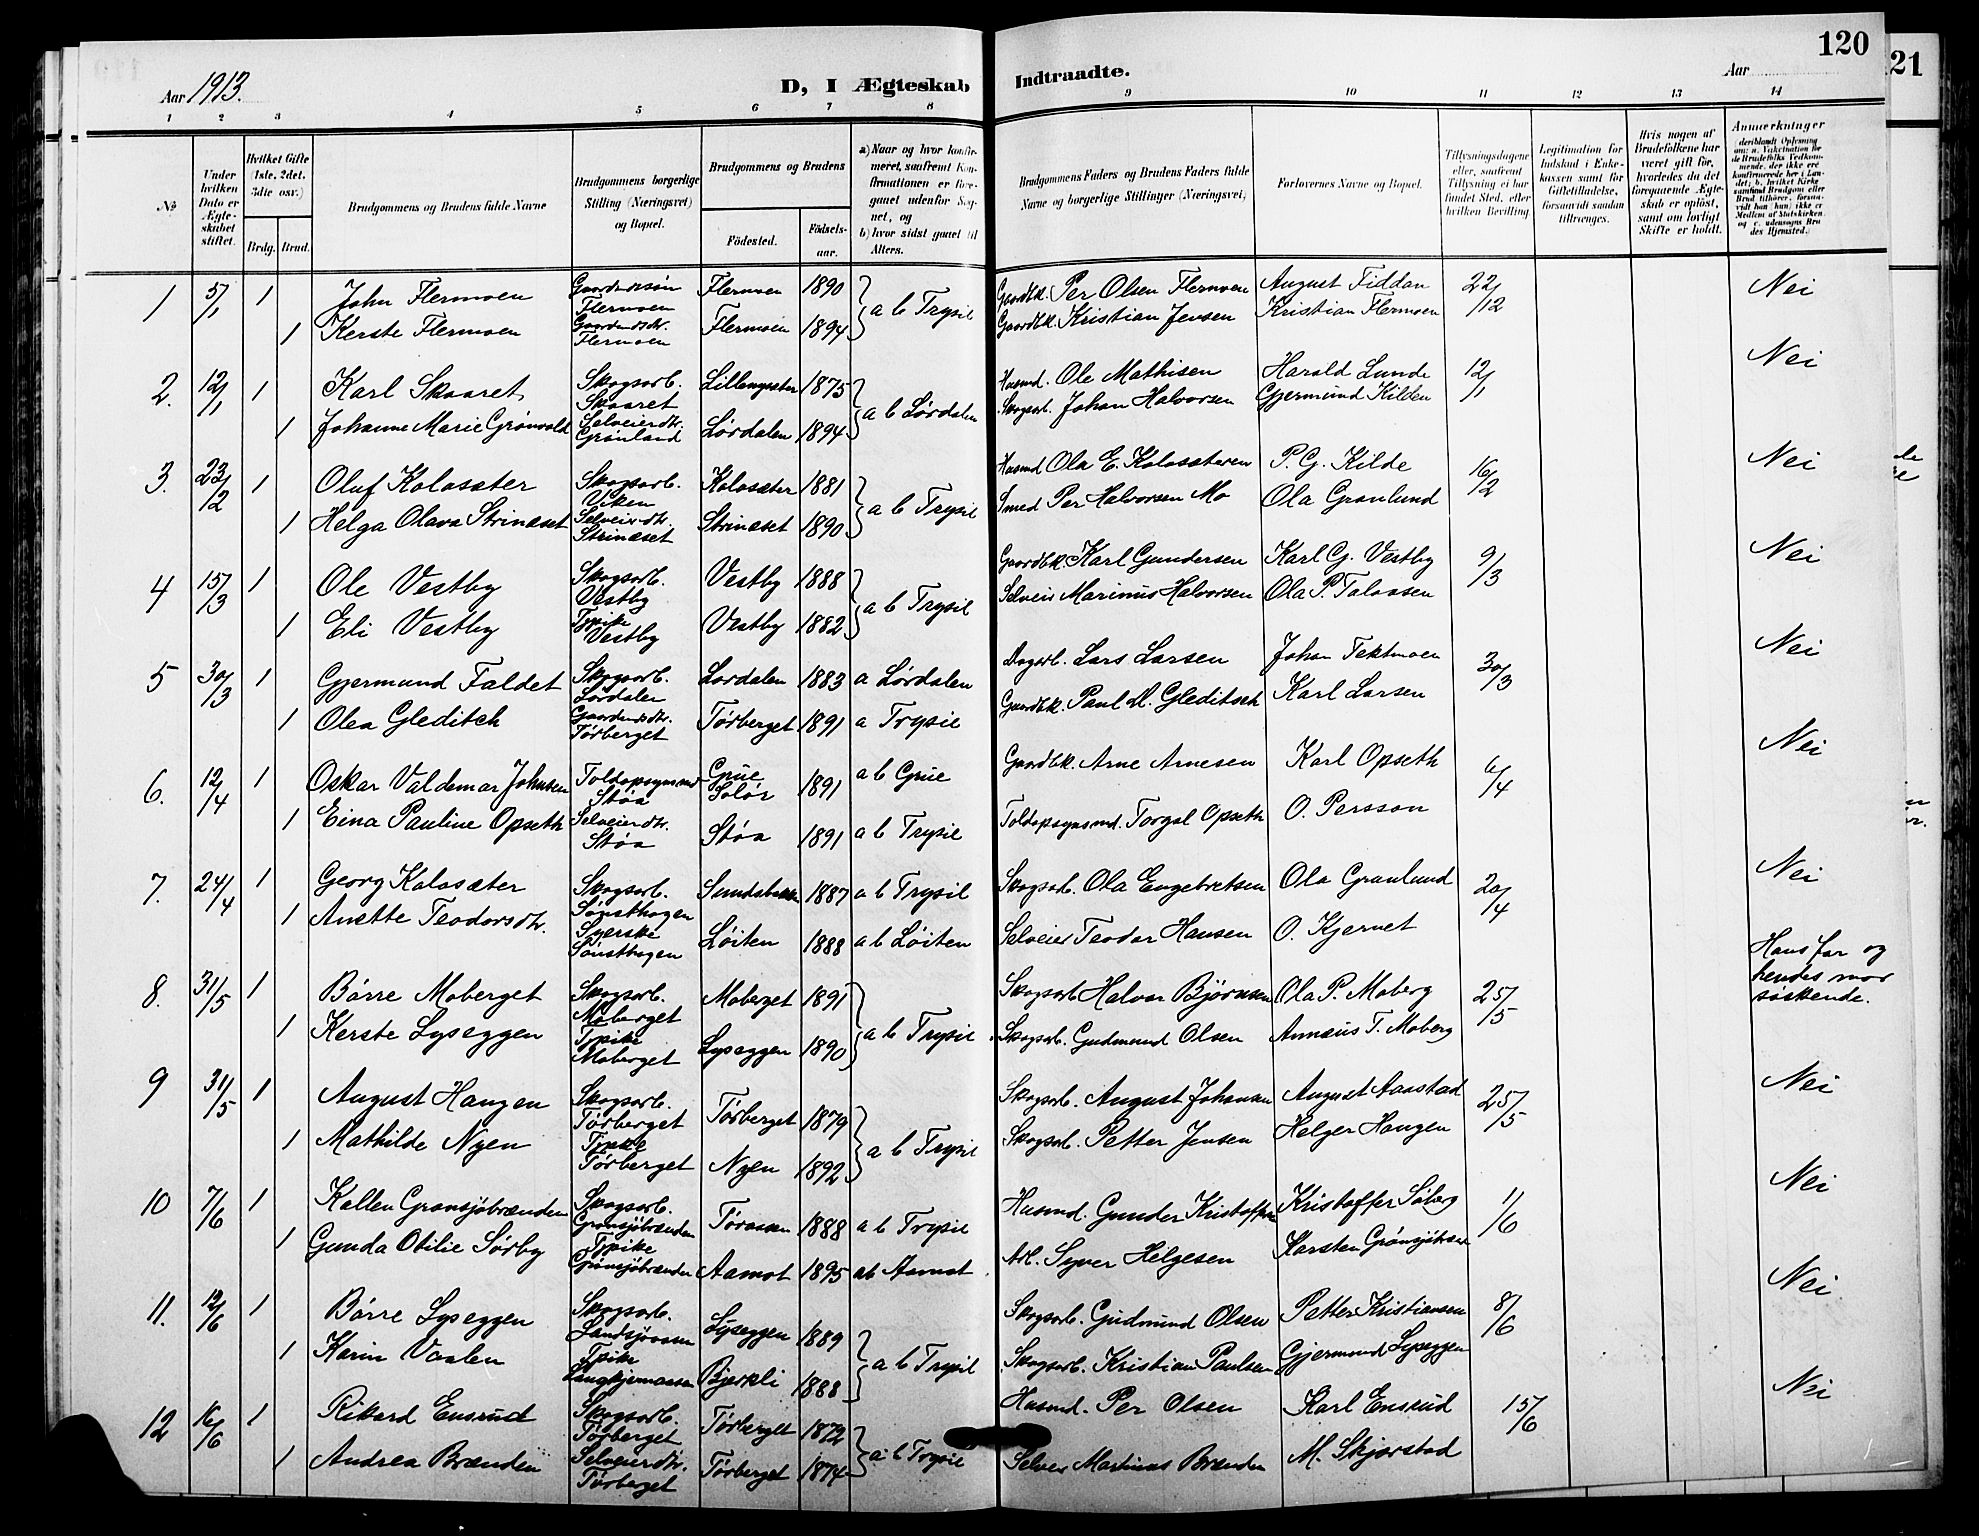 120
21
Aar 1913.
D, I Ægteskab Indtraadte.
Aar
1 2 3 4 5 6 7 8 9 10 11 12 13 14
No
Under hvilken Dato er Ægteskabet stiftet.
Hvilket Gifte (1ste, 2det, 3die osv.)
Brdg. Brud.
Brudgommens og Brudens fulde Navne
Brudgommens borgerlige Stilling (Næringsvei) og Bopæl.
Brudgommens og Brudens
Fødested.
Fødselsaar.
a) Naar og hvor konfirmeret, saafremt Konfirmationen er foregaaet udenfor Sognet, og
b) hvor sidst gaaet til Alters.
Brudgommens Faders og Brudens Faders fulde Navne og borgerlige Stillinger (Næringsvei)
Forlovernes Navne og Bopæl.
Tillysningsdagene eller, saafremt Tillysning ei har fundet Sted, efter hvilken Bevilling.
Legitimation for Indskud i Enkekassen samt for Giftetilladelse, forsaavidt saadan tiltrænges.
Hvis nogen af Brudefolkene har været gift før, hvorledes da det foregaaende Ægteskab er opløst, samt om lovligt Skifte er holdt.
Anmærkninger
1 5/1 1 John Flermoen Gaardmdssøn Flermoen Flermoen 1890 a b Trysil Gaardbk. Per Olsen Flermoen August Fiddan 22/12 Nei
1 Kerste Flermoen Gaardmdsdtr. Flermoen Flermoen 1894 Gaardbk. Kristian Jensen Kristian Flermoen
2. 12/1 1 Karl Skaaret Skogsarb. Skaaret Lillengsæter 1875 a b Lørdalen Husmd. Ole Mathisen Harald Lunde 12/1 Nei
1 Johanne Marie Grønvold Selveierdtr. Grønland Lørdalen 1894 Skogsarb. Johan Halvorsen Gjermund Kilden
3. 23/2 1 Oluf Kolosæter Skogsarb. Viken Kolosæter 1881 a b Trysil Husmd Ola E. Kolosæteren P. G. Kilde 16/2 Nei
1 Helga Olava Strinæset Selveierdtr. Strinæset Strinæset 1890 Smed Per Halvorsen Mo Ola Granlund
4 15/3 1 Ole Vestby Skogsarb. Vestby Vestby 1888 a b Trysil Gaardbk. Karl Gundersen Karl G. Vestby 9/3 Nei
1 Eli Vestby Tpike Vestby Vestby 1882 Selveier Marinus Halvorsen Ola P. Talaasen
5 30/3 1 Gjermund Faldet Skogsarb. Lørdalen Lørdalen 1883 a Lørdalen Dagarb. Lars Larsen Johan Tektmoen 30/3 Nei
1 Olea Gleditch Gaardmdsdtr. Tørberget Tørberget 1891 a Trysil Gaardbk. Paul M. Gleditsch Karl Larsen
6. 12/4 1 Oskar Valdemar Johnsen Toldopsynsmd Støa Grue Solør 1891 a b Grue Gaardbk. Arne Arnesen Karl Opseth 6/4 Nei
1 Eina Pauline Opseth Selveierdtr. Støa Støa 1891 a b Trysil Toldopsynsmd. Torgal Opseth O. Persson
7. 24/4 1 Georg Kolosæter Skogsarb. Sønsthagen 1887 a b Trysil Skogsarb. Ola Engebretsen Ola Granlund 20/4 Nei
1 Anette Teodorsdtr. Syerske Sønsthagen Løiten 1888 a b Løiten Selveier Teodor Hansen O. Kjernet
8. 31/5 1 Børre Moberget Skogsarb. Moberget Moberget 1891 a b Trysil Skogsarb Halvor Bjørnsen Ola P. Moberg 25/5 Hans far og hendes mor søskende.
1 Kerste Lyseggen Tpike Moberget Lyseggen 1890 Skogsarb. Gudmund Olsen Annæus T. Moberg
9 31/5 1 August Haugen Skogsarb. Tørberget Tørberget 1879 a b Trysil Skogsarb. August Johansen August Aanstad 25/5 Nei
1 Mathilde Nyen Tpike Tørberget Nyen 1892 Skogsarb. Petter Jensen Helger Haugen
10 7/6 1 Kallen Grønsjøbrænden Skogsarb. Grønsjøbrænden Tøraasen 1888 a b Trysil Husmd. Gunder Kristoffersen Kristoffer Søberg 1/6 Nei
1 Gunda Otilie Sørby Tpike Grønsjøbrænden Aamot 1895 ab Aamot Arb. Syver Helgesen Karsten
11. 12/6 1 Børre Lyseggen Skogsarb. Landsjøaasen Lyseggen 1889 a b Trysil Skogsarb. Gudmund Olsen Petter Kristiansen 8/6 Nei
1 Karin Vaalen Tpike Bjerkli 1888 Skogsarb. Kristian Paulsen Gjermund Lyseggen
12 16/6 1 Rikard Ensrud Skogsarb. Tørberget Tørberget 1872 a b Trysil Husmd. Per Olsen Karl Ensrud 15/6 Nei
1 Andrea Brænden Selveierdtr. Tørberget Tørberget 1874 Selveier Martinus Brænden M. Skjærstad